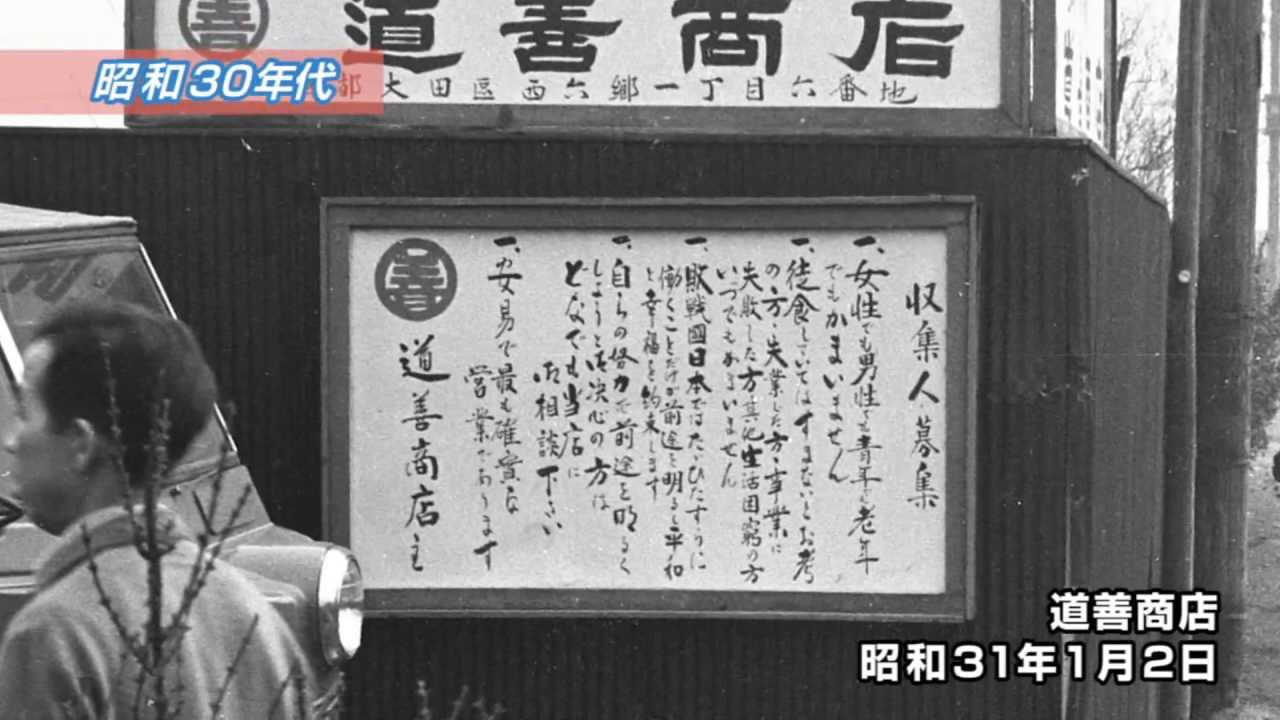 善
道善商店
昭和30年代
都大田區西六郷一丁目六番地
収集人募集
一、女性でも男性でも青年でも老年
でもかまいません
一、徒食していてはすまないとお考
の方・失業した方・事業に
失敗した方其他生活困窮の方
いつでもかまいません
一、敗戦國日本ではたゞひたすらに
働くことだけが前途を明るく平和
と幸福を約束します
一、自らの努力で前途を明るく
しようと御決心の方は
どなたでも当店に
御相談下さい
一、安易で最も確実な
営業であります
善
道善商店主
道善商店
昭和31年1月2日